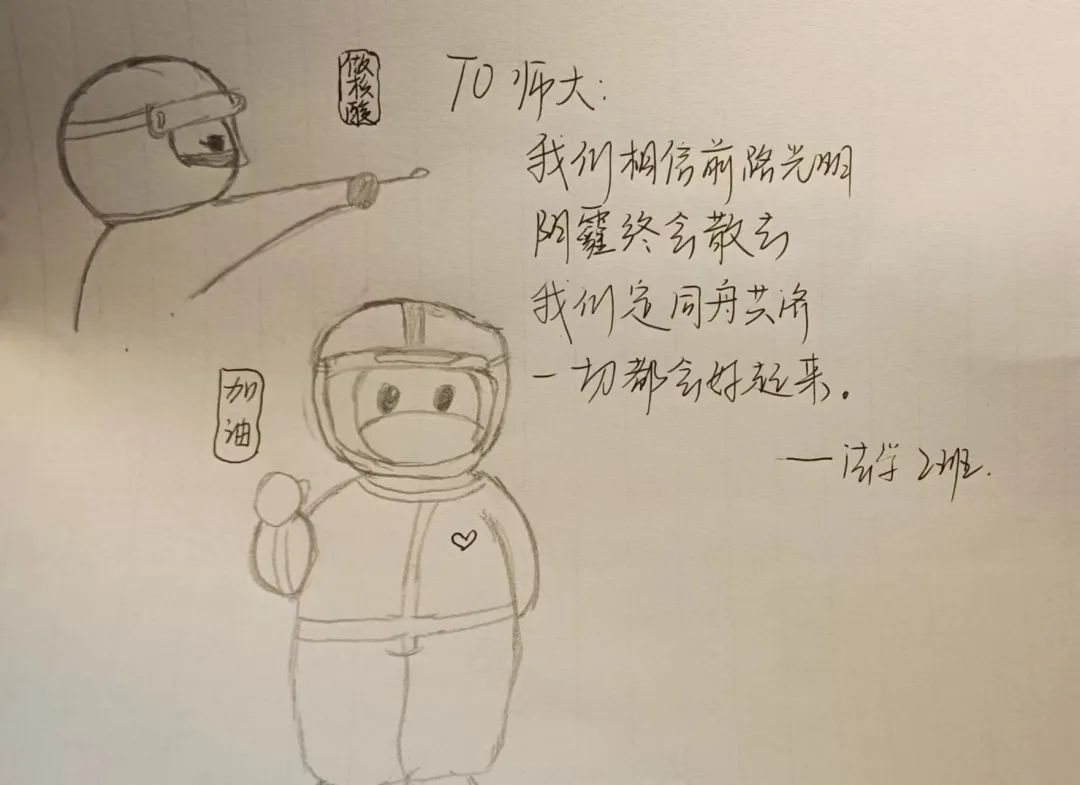 做核酸
TO 师大:
我们相信前路光明
阴霾终会散去
我们定同舟共济
一切都会好起来。
加油
——法学2班.